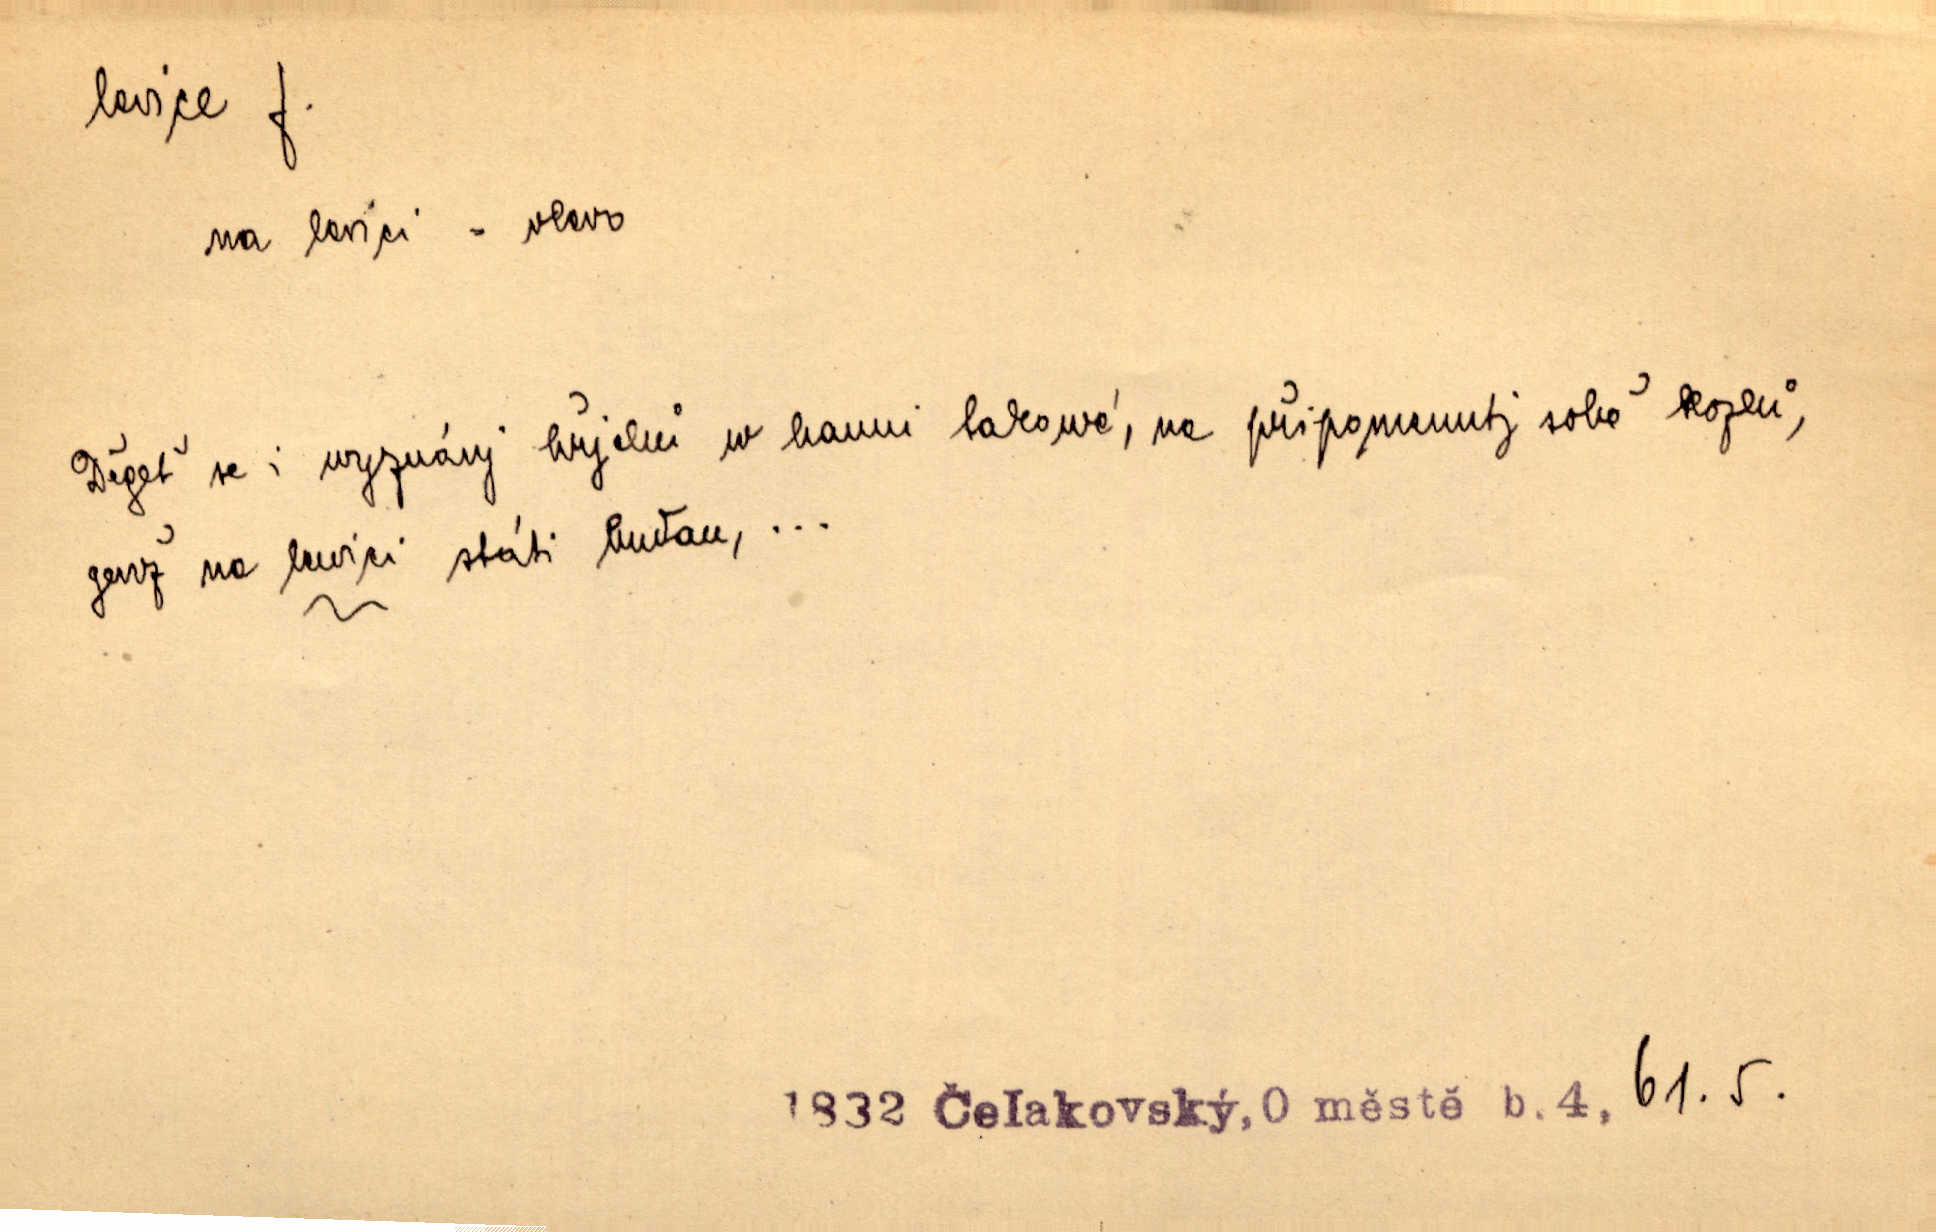 levice f.
na levici - vlevo
Děgeť se i wyznánj hřjchů w hanni takowé, na připomenutj sobě kozlů,
genž na lewici státi buďau, ...
1832 Čelakovský, O městě b. 4, 61. 5.